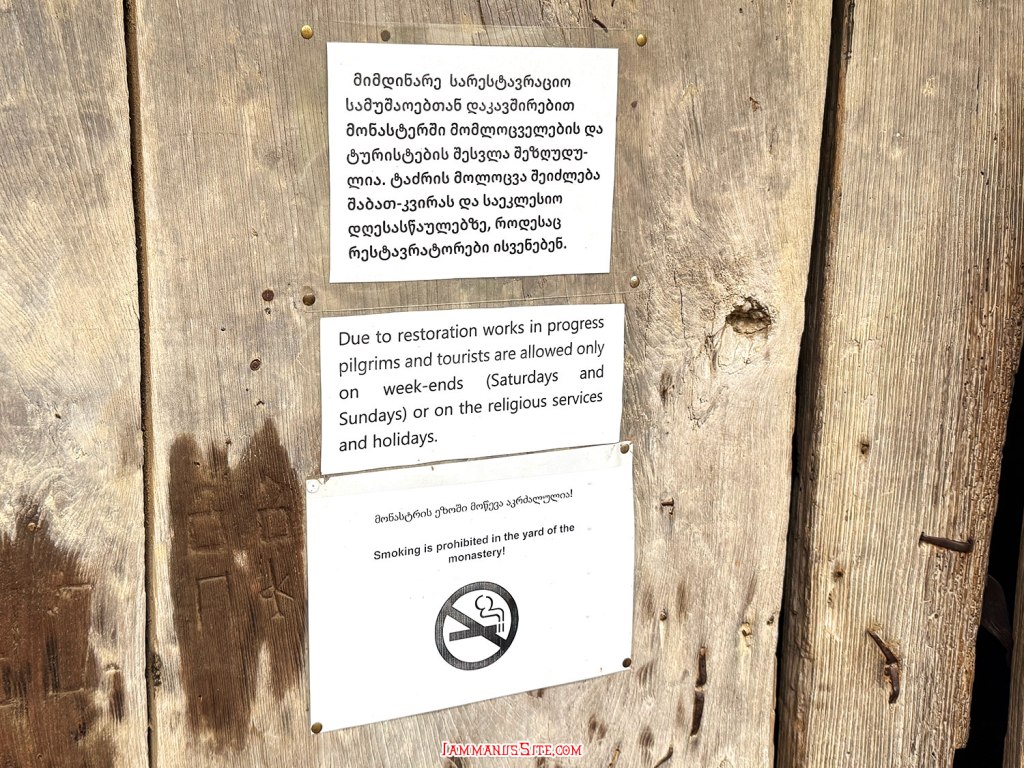 მიმდინარე სარესტავრაციო
სამუშაოებთან დაკავშირებით
მონასტერში მომლოცველების და
ტურისტების შესვლა შეზღუდუ-
ლია. ტაძრის მოლოცვა შეიძლება
შაბათ-კვირას და საეკლესიო
დღესასწაულებზე, როდესაც
რესტავრატორები ისვენებენ.
Due to restoration works in progress
pilgrims and tourists are allowed only
on week-ends (Saturdays and
Sundays) or on the religious services
and holidays.
მონასტრის ეზოში მოწევა აკრძალულია!
Smoking is prohibited in the yard of the
monastery!
IammanusSite.com